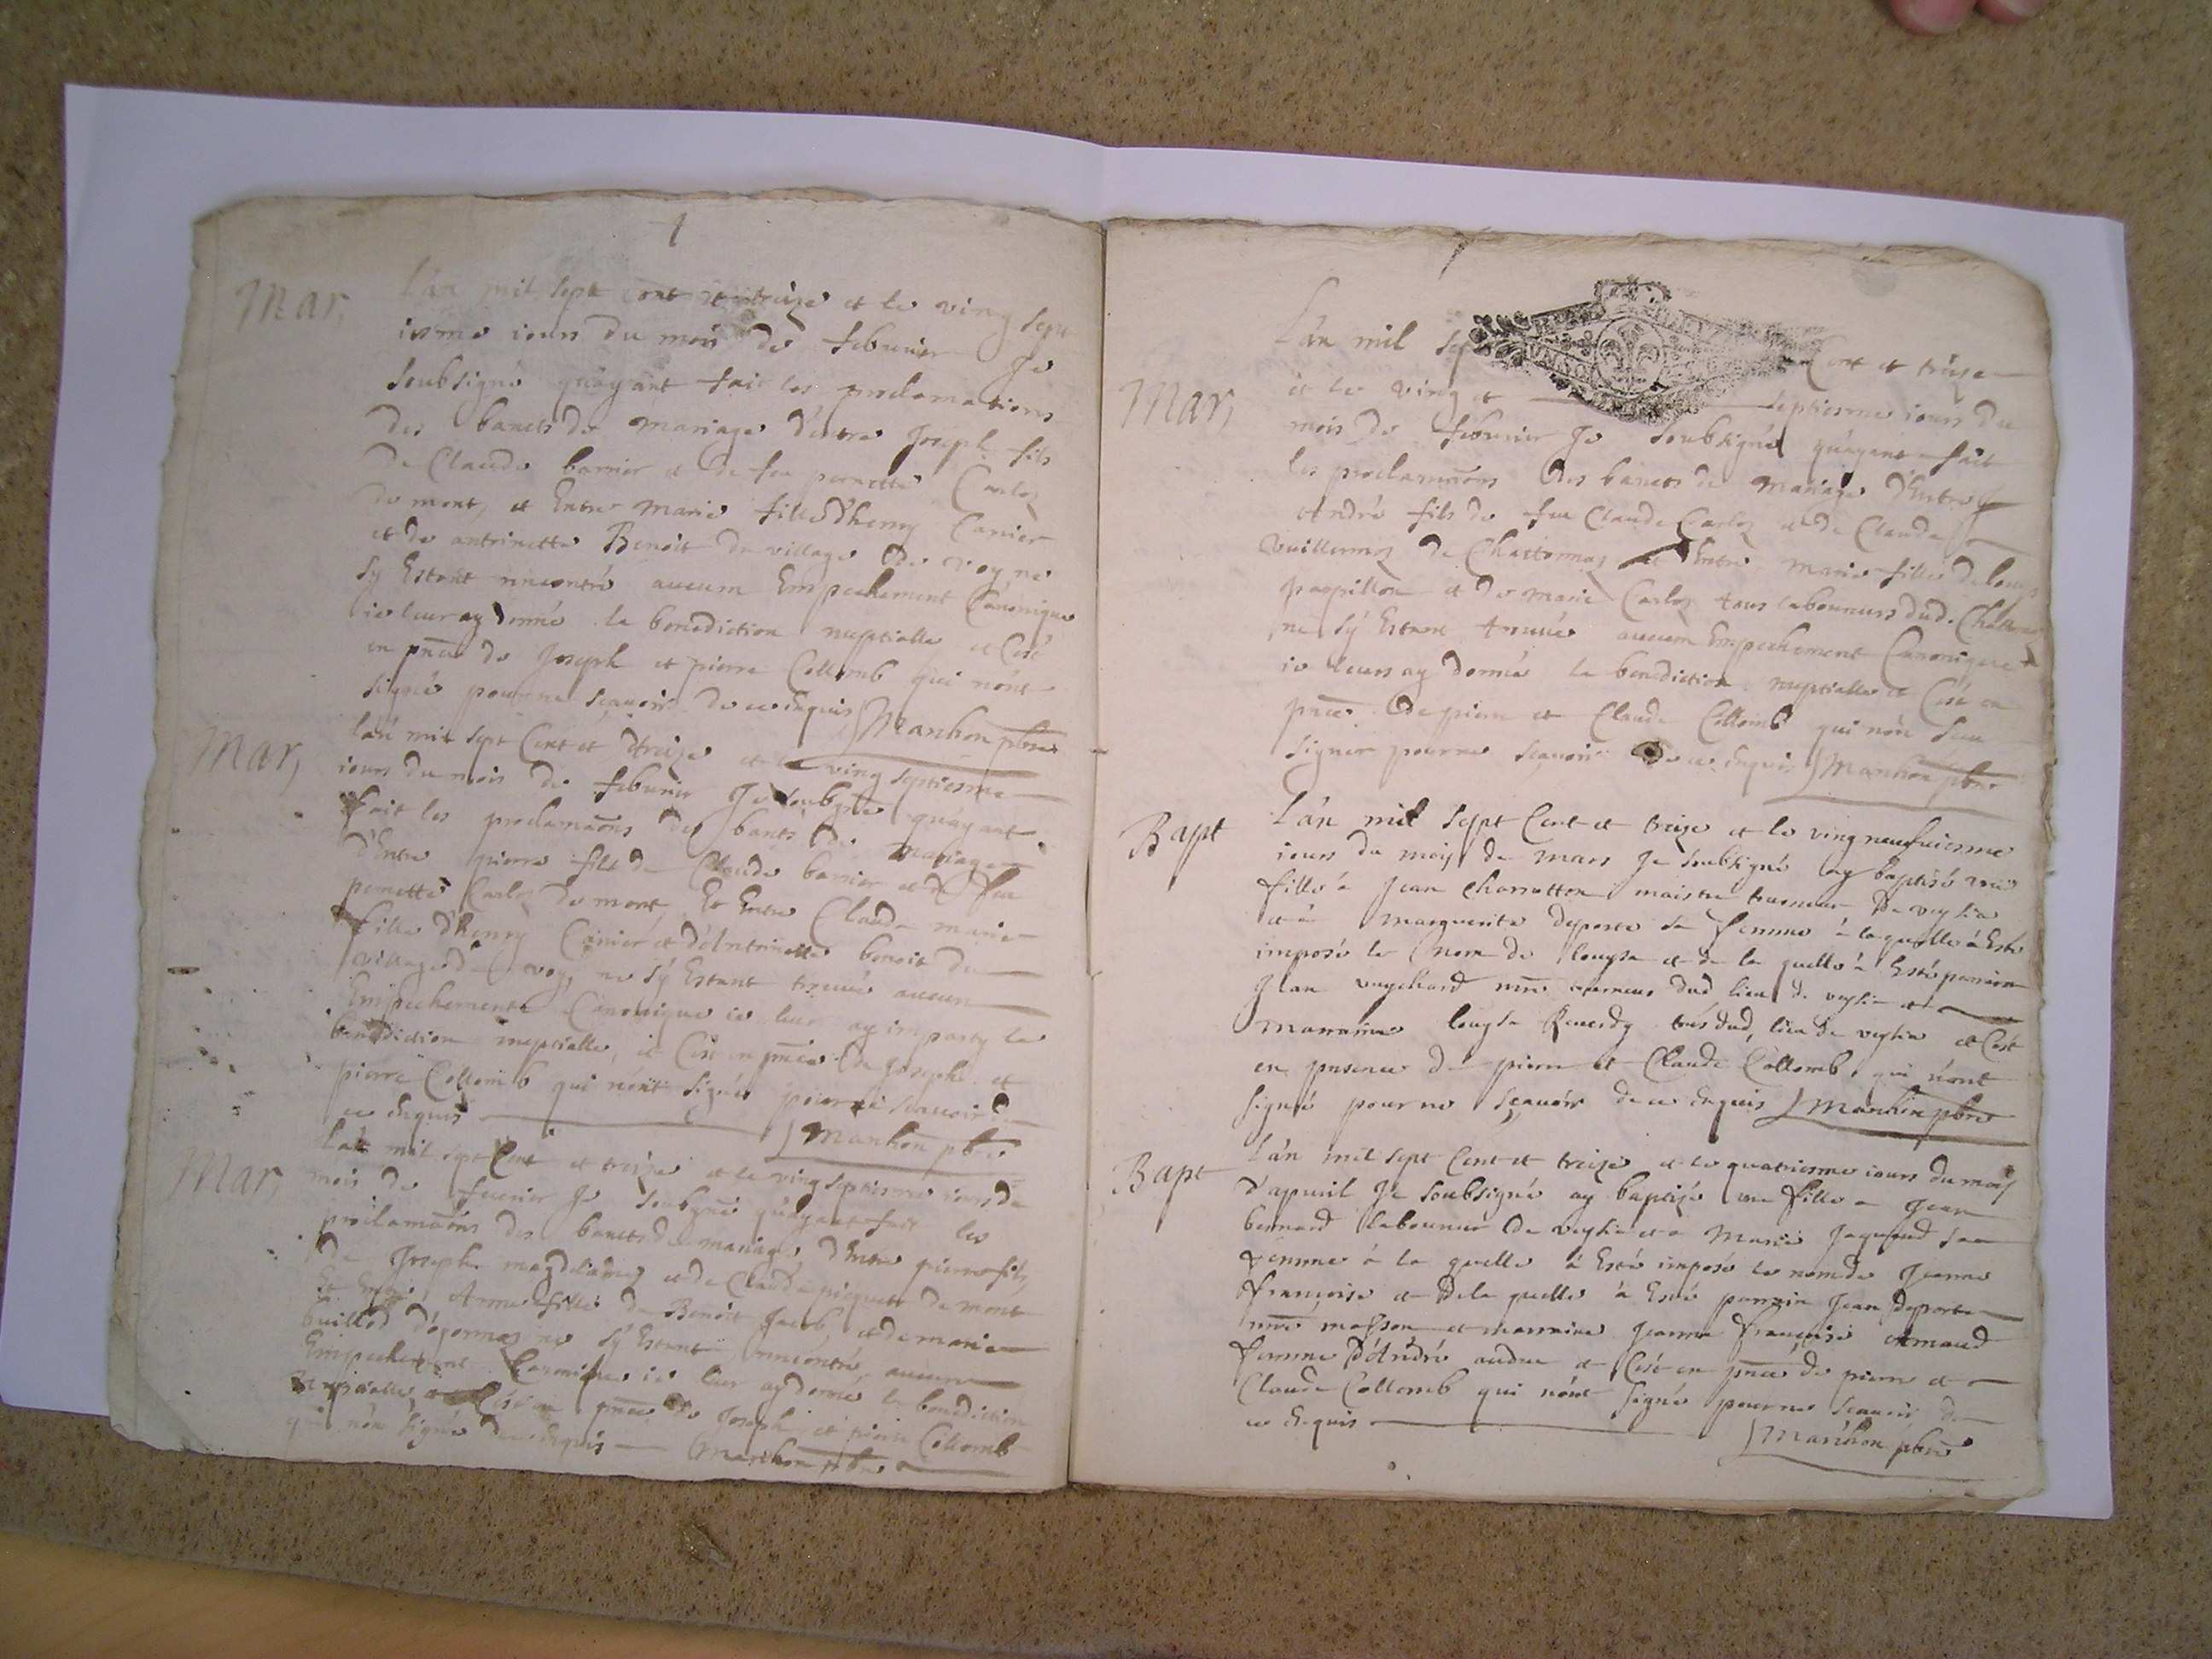 Mar,
L'an mil sept cent et treize et le ving sept
iesme iours du mois de feburier Je
soubsigné qu'ayant fait les proclamations
des bancts de mariage d'entre Joseph fils
de Claude barrier et de feu pernette Carloz
de mont, et Entre Marie fille d'henry Canier
et de antoinette Benoit du village de voy ne
sy Estant rencontré aucum Empechement Canonique
ie leur ay donné la benediction nuptialle et C'est
en pnce de Joseph et pierre Collomb qui n'ont
signé pour ne sçauoir de ce Enquis Manhon pbre
Mar,
l'an mil sept Cent et treize et le ving septiesme
iours du mois de feburier Je soubsné qu'ayant
fait les proclamaons des bancts de mariage
d'Entre pierre fils de Claude barrier et de feu
pernette Carloz de mont, Et Entre Claude marie
fille d'henry Canier et d'Antoinette benoit du
village de voy, ne s'y Estant trouué aucun
Empechement Canonique ie leur ay imparty la
benediction nuptialle, et C'est en pnce de Joseph et
pierre Collomb qui n'ont signé pour ne scauoir de
ce Enquis Manhon pbre
Mar,
L'an mil sept Cent et treize et le ving septiesme iours du
mois de feurier Je soubsné qu'ayant fait les
proclamaons des bancts de mariage d'Entre pierre fils
de Joseph et de Claude de mont
Et Entre Anne fille de Benoit Jacob, et de marie
ne s'y Estant rencontré aucun
Empechement Canonique ie leur ay donné la benediction
Nuptialle et C'est en pnce de Joseph et pierre Collomb
qui n'on signé de ce Enquis Manhon pbre
L'an mil sept Cent et treize
Mar,
et le ving et septiesme iours du
mois de feburier Je soubsigné qu'ayant fait
les proclamaons des bancts de mariage d'Entre
André fils de feu Claude Carloz et de Claude
Vuillermoz de Chattonnaz et Entre Marie fille de Louys
papillon et de marie Carloz tous laboureurs dud.
ne s'y Estant trouué aucum Empechement Canonique
ie leurs ay donné la benediction nuptialle et C'est en
pnce de pierre et Claude Collomb qui n'on sceu
signer pour ne sçauoir de ce Enquis Manhon pbre
Bapt
L'an mil sept Cent et treize et le ving neufuiesme
iours du moys de mars Je soubsigné ay baptisé une
fille a Jean Charretton maistre de veylia
et a marguerite deporte sa femme a laquelle a Esté
imposé le nom de louyse et de la quelle a Esté parrain
Jean dud lieu de veylia et
marraine louyse dud, lieu de veylia et C'est
en presence de pierre et Claude Collomb, qui n'ont
signé pour ne sçauoir de ce Enquis Manhon pbre
Bapt
L'an mil sept Cent et treize et le quatriesme iours du moys
d'appuril Je soubsigné ay baptizé une fille a Jean
bernard laboureur de veylia et a Marie Jaquoud sa
femme a la quelle a Esté imposé le nom de Jeanne
françoise et de la quelle a Esté parrain Jean deporte
mre masson et marraine Jeanne françoise
femme d'André audue et C'est en pnce de pierre et
Claude Collomb qui n'ont signé pour ne scauoir de
ce Enquis Manhon pbre